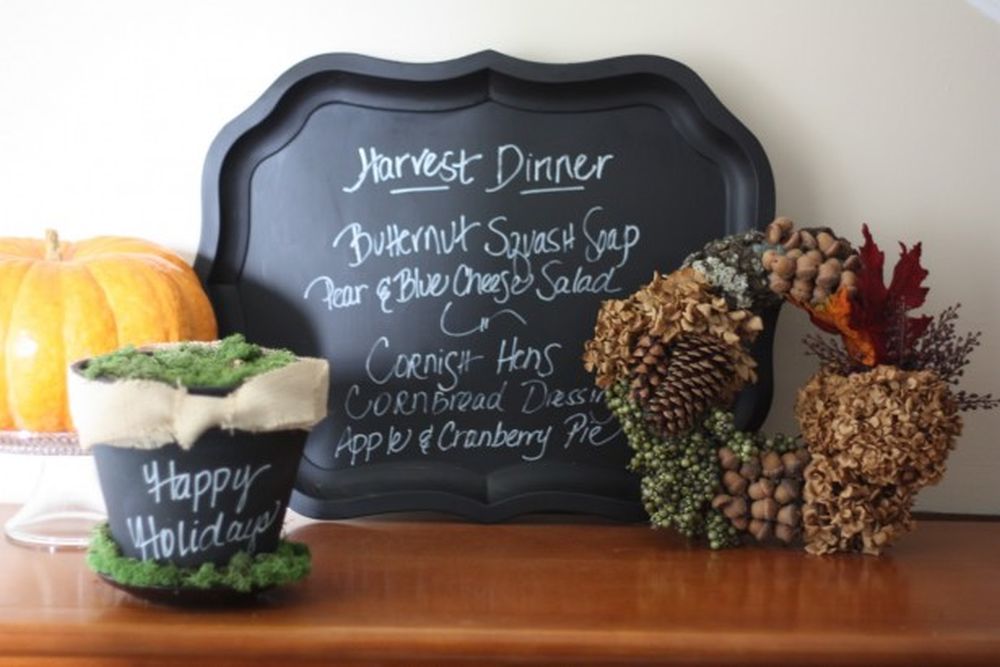 Harvest Dinner
Butternut Squash Soap
Pear & Blue Cheese Salad
Cornish Hens
Cornbread Dressing
Apple & Cranberry Pie
Happy
Holidays